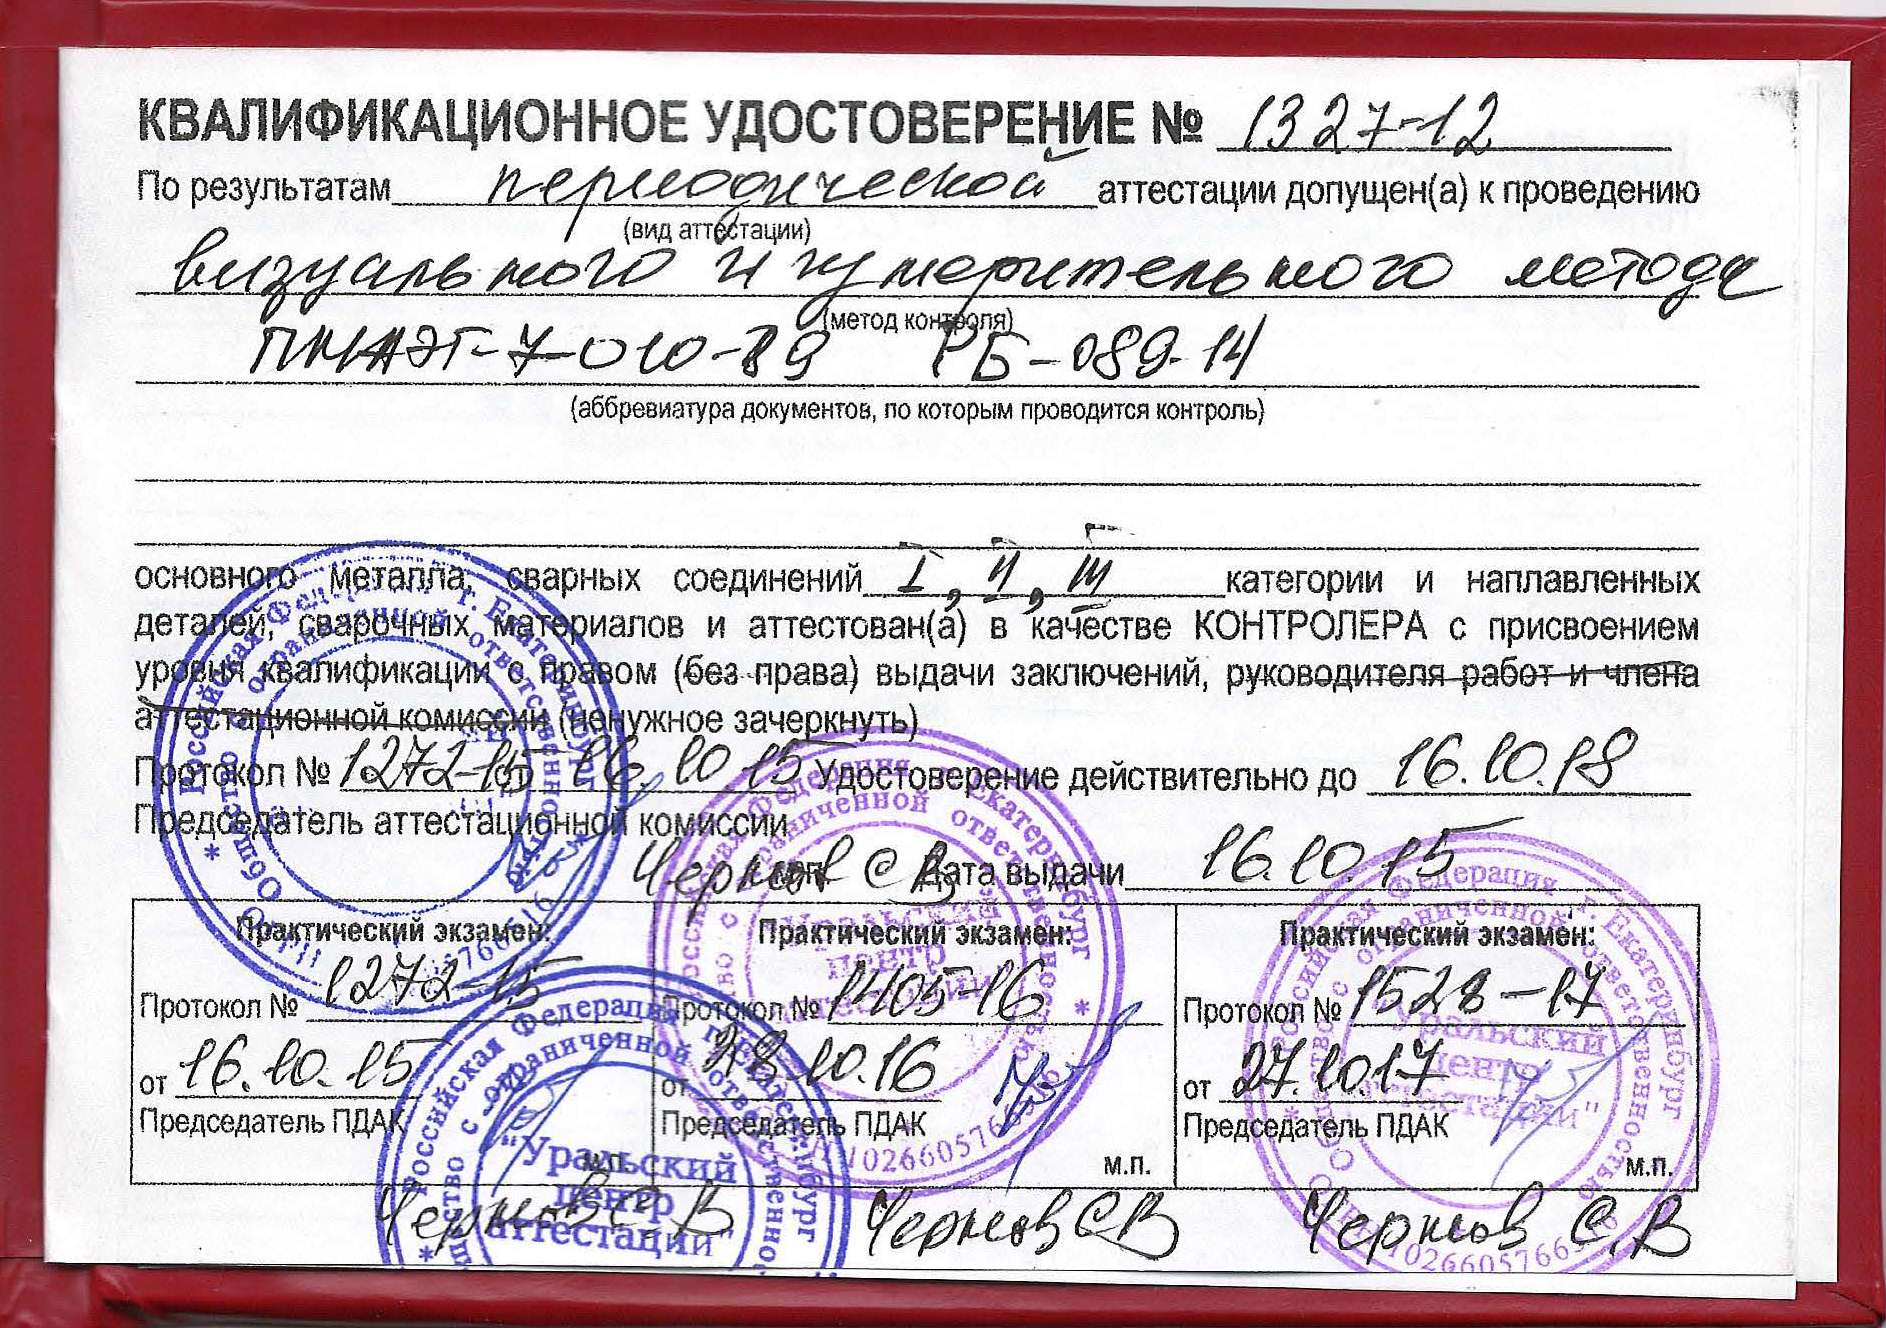 КВАЛИФИКАЦИОННОЕ УДОСТОВЕРЕНИЕ № 1327-12
По результатам периодической аттестации допущен(а) к проведению
(вид аттестации)
визуального и измерительного метода
(метод контроля)
ПНАЭГ-7-010-89 РБ-089-14
(аббревиатура документов, по которым проводится контроль)
основного металла, сварных соединений I, II, III категории и наплавленных
деталей, сварочных материалов и аттестован(а) в качестве КОНТРОЛЕРА с присвоением
уровня квалификации с правом (без права) выдачи заключений, руководителя работ и члена
аттестационной комиссии (ненужное зачеркнуть)
Протокол № 1272-15 от 16.10.15 Удостоверение действительно до 16.10.18
Председатель аттестационной комиссии
Чернов С В м.п. Дата выдачи 16.10.15
Практический экзамен: Практический экзамен: Практический экзамен:
Протокол № 1272-15 Протокол № 1405-16 Протокол № 1528-17
от 16.10.15 от 10.16 от 27.10.17
Председатель ПДАК Председатель ПДАК Председатель ПДАК
м.п. м.п. м.п.
Чернов С В Чернов С В Чернов С.В
Российская Федерация г. Екатеринбург
Общество с ограниченной ответственностью
Российская Федерация г. Екатеринбург
Общество с ограниченной ответственностью
"Уральский
центр
аттестации"
Российская Федерация г. Екатеринбург
Общество с ограниченной ответственностью
"Уральский
центр
аттестации"
Российская Федерация г. Екатеринбург
Общество с ограниченной ответственностью
"Уральский
центр
аттестации"